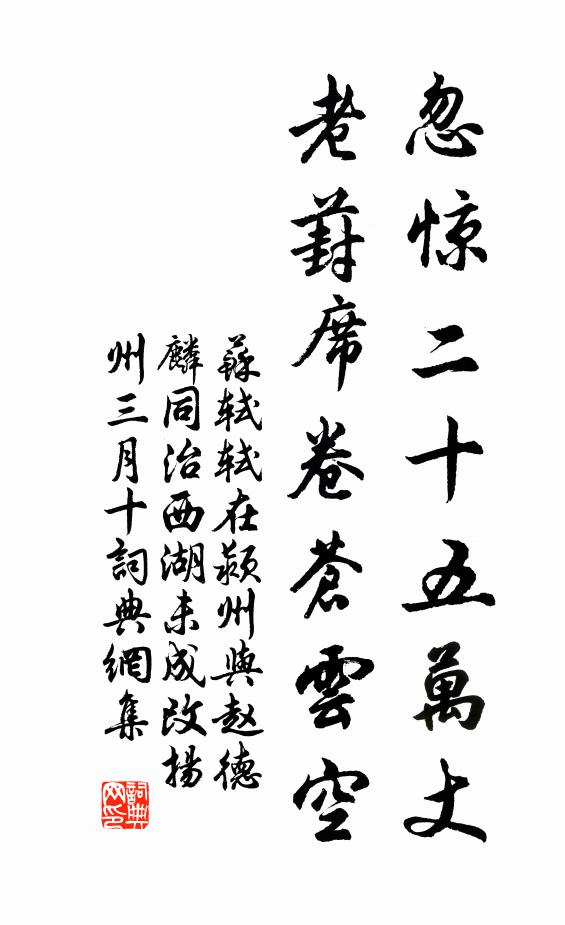 忽惊二十五萬丈
老葑席卷蒼雲空
蘇軾軾在颍州與赵德
麟同治西湖未成改揚
州三月十詞典網集
詞典
网印